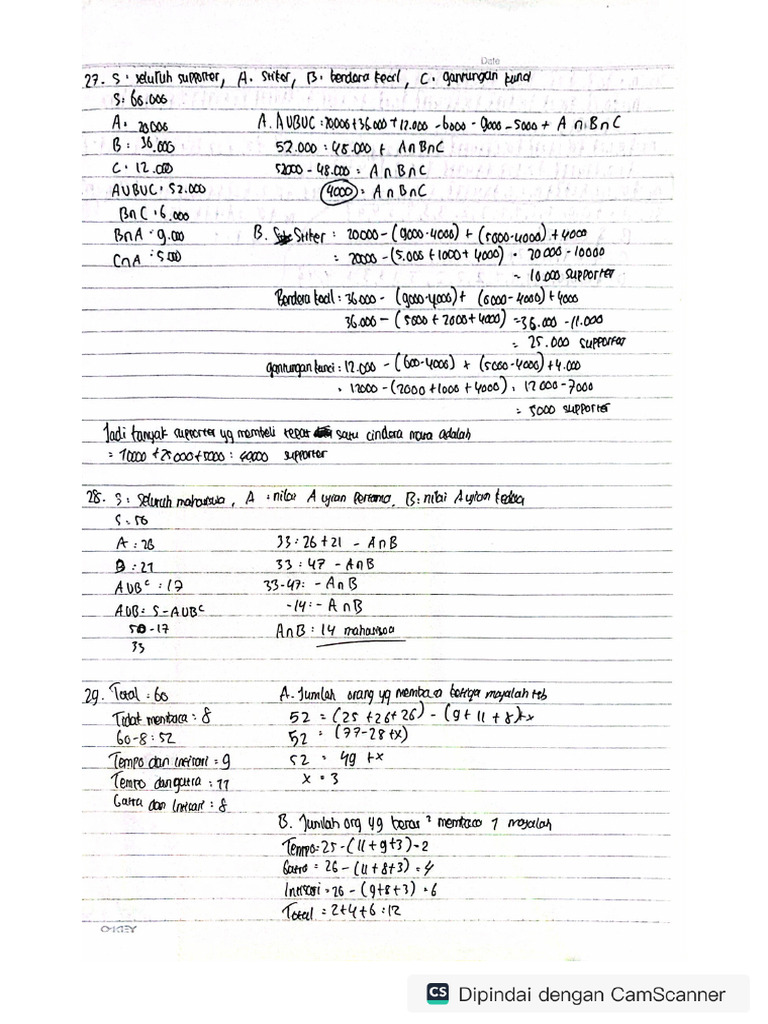 Date
27. S : seluruh supporter, A. Stiker, B : bendera kecil, C. gantungan kunci
S: 66.006
A : 20006
A. AUBUC : 20006 + 36.000 + 12.000 - 6000 - 9000 - 5000 + A ∩ B ∩ C
B : 36.000
52.000 : 48.000 + A∩B∩C
C : 12.000
52000 - 48.000 = A∩B∩C
AUBUC : 52.000
4000 = A∩B∩C
B∩C : 6.000
B∩A : 9.000
B. Stiker : 20000 - (9000-4000) + (5000-4000) + 4000
C∩A : 5.000
= 20000 - (5.000 + 1000 + 4000) = 20 000 - 10000
= 10.000 supporter
Bendera kecil : 36.000 - (9000-4000) + (6000-4000) + 4000
36.000 - (5000 + 2000 + 4000) = 36.000 - 11.000
= 25.000 supporter
gantungan kunci : 12.000 - (600-4000) + (5000-4000) + 4.000
= 12000 - (2000 + 1000 + 4000) = 12 000 - 7000
= 5000 supporter
Jadi banyak suporter yg membeli tepat satu cindera mata adalah
= 10000 + 25000 + 5000 : 40000 supporter
28. S : Seluruh mahasiswa, A : nilai A ujian Pertama, B : nilai A ujian kedua
S : 50
A : 26
33 : 26 + 21 - A∩B
B : 21
33 : 47 - A∩B
AUBᶜ : 17
33-47 : - A∩B
AUB = S - AUBᶜ
-14 : - A∩B
50 - 17
A∩B : 14 mahasiswa
33
29. Total : 60
A. Jumlah orang yg membaca ketiga majalah tsb
Tidak membaca : 8
52 = (25 + 26 + 26) - (9 + 11 + 8) + x
60 - 8 : 52
52 = (77 - 28 + x)
Tempo dan Intisari = 9
52 = 49 + x
Tempo dan gatra : 11
x = 3
Gatra dan Intisari : 8
B. Jumlah org yg benar² membaca 1 majalah
Tempo = 25 - (11 + 9 + 3) = 2
Gatra = 26 - (11 + 8 + 3) = 4
Intisari = 26 - (9 + 8 + 3) = 6
Total = 2 + 4 + 6 : 12
CS Dipindai dengan CamScanner